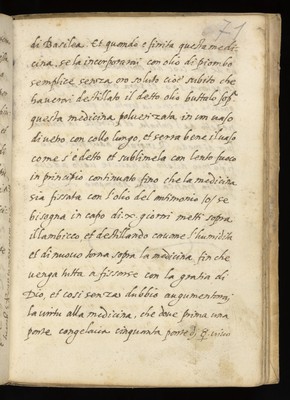 71
di Basilea. Et quando è finita questa medi=
cina, se la incorporarai con olio di piombo
semplice senza oro soluto cioè subito che
haverai destillato il detto olio buttalo sopra
questa medicina polverizata in un vaso
di vetro con collo longo, et serra bene il vaso
come s'è detto et sublimela con lento fuoco
in principio continuato fino che la medicina
sia fissata con l'olio del antimonio
bisogna in capo di .x. giorni metti sopra
il lambicco, et destillando cavane l'humidità
et di nuovo torna sopra la medicina fin che
venga tutta a fissarse con la gratia di
Dio, et così senza dubbio augumentarai
la virtù alla medicina, che dove prima una
parte congelava cinquanta parte di vivo